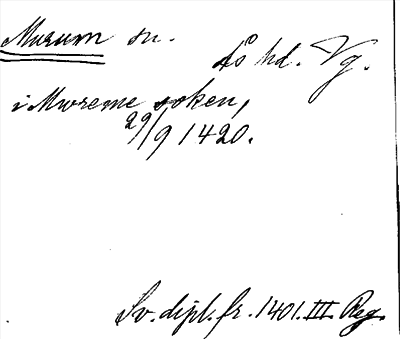 Murum sn.
Ås hd. Vg.
i Mwreme soken,
29/9 1420.
Sv. dipl. fr. 1401. III. Reg.